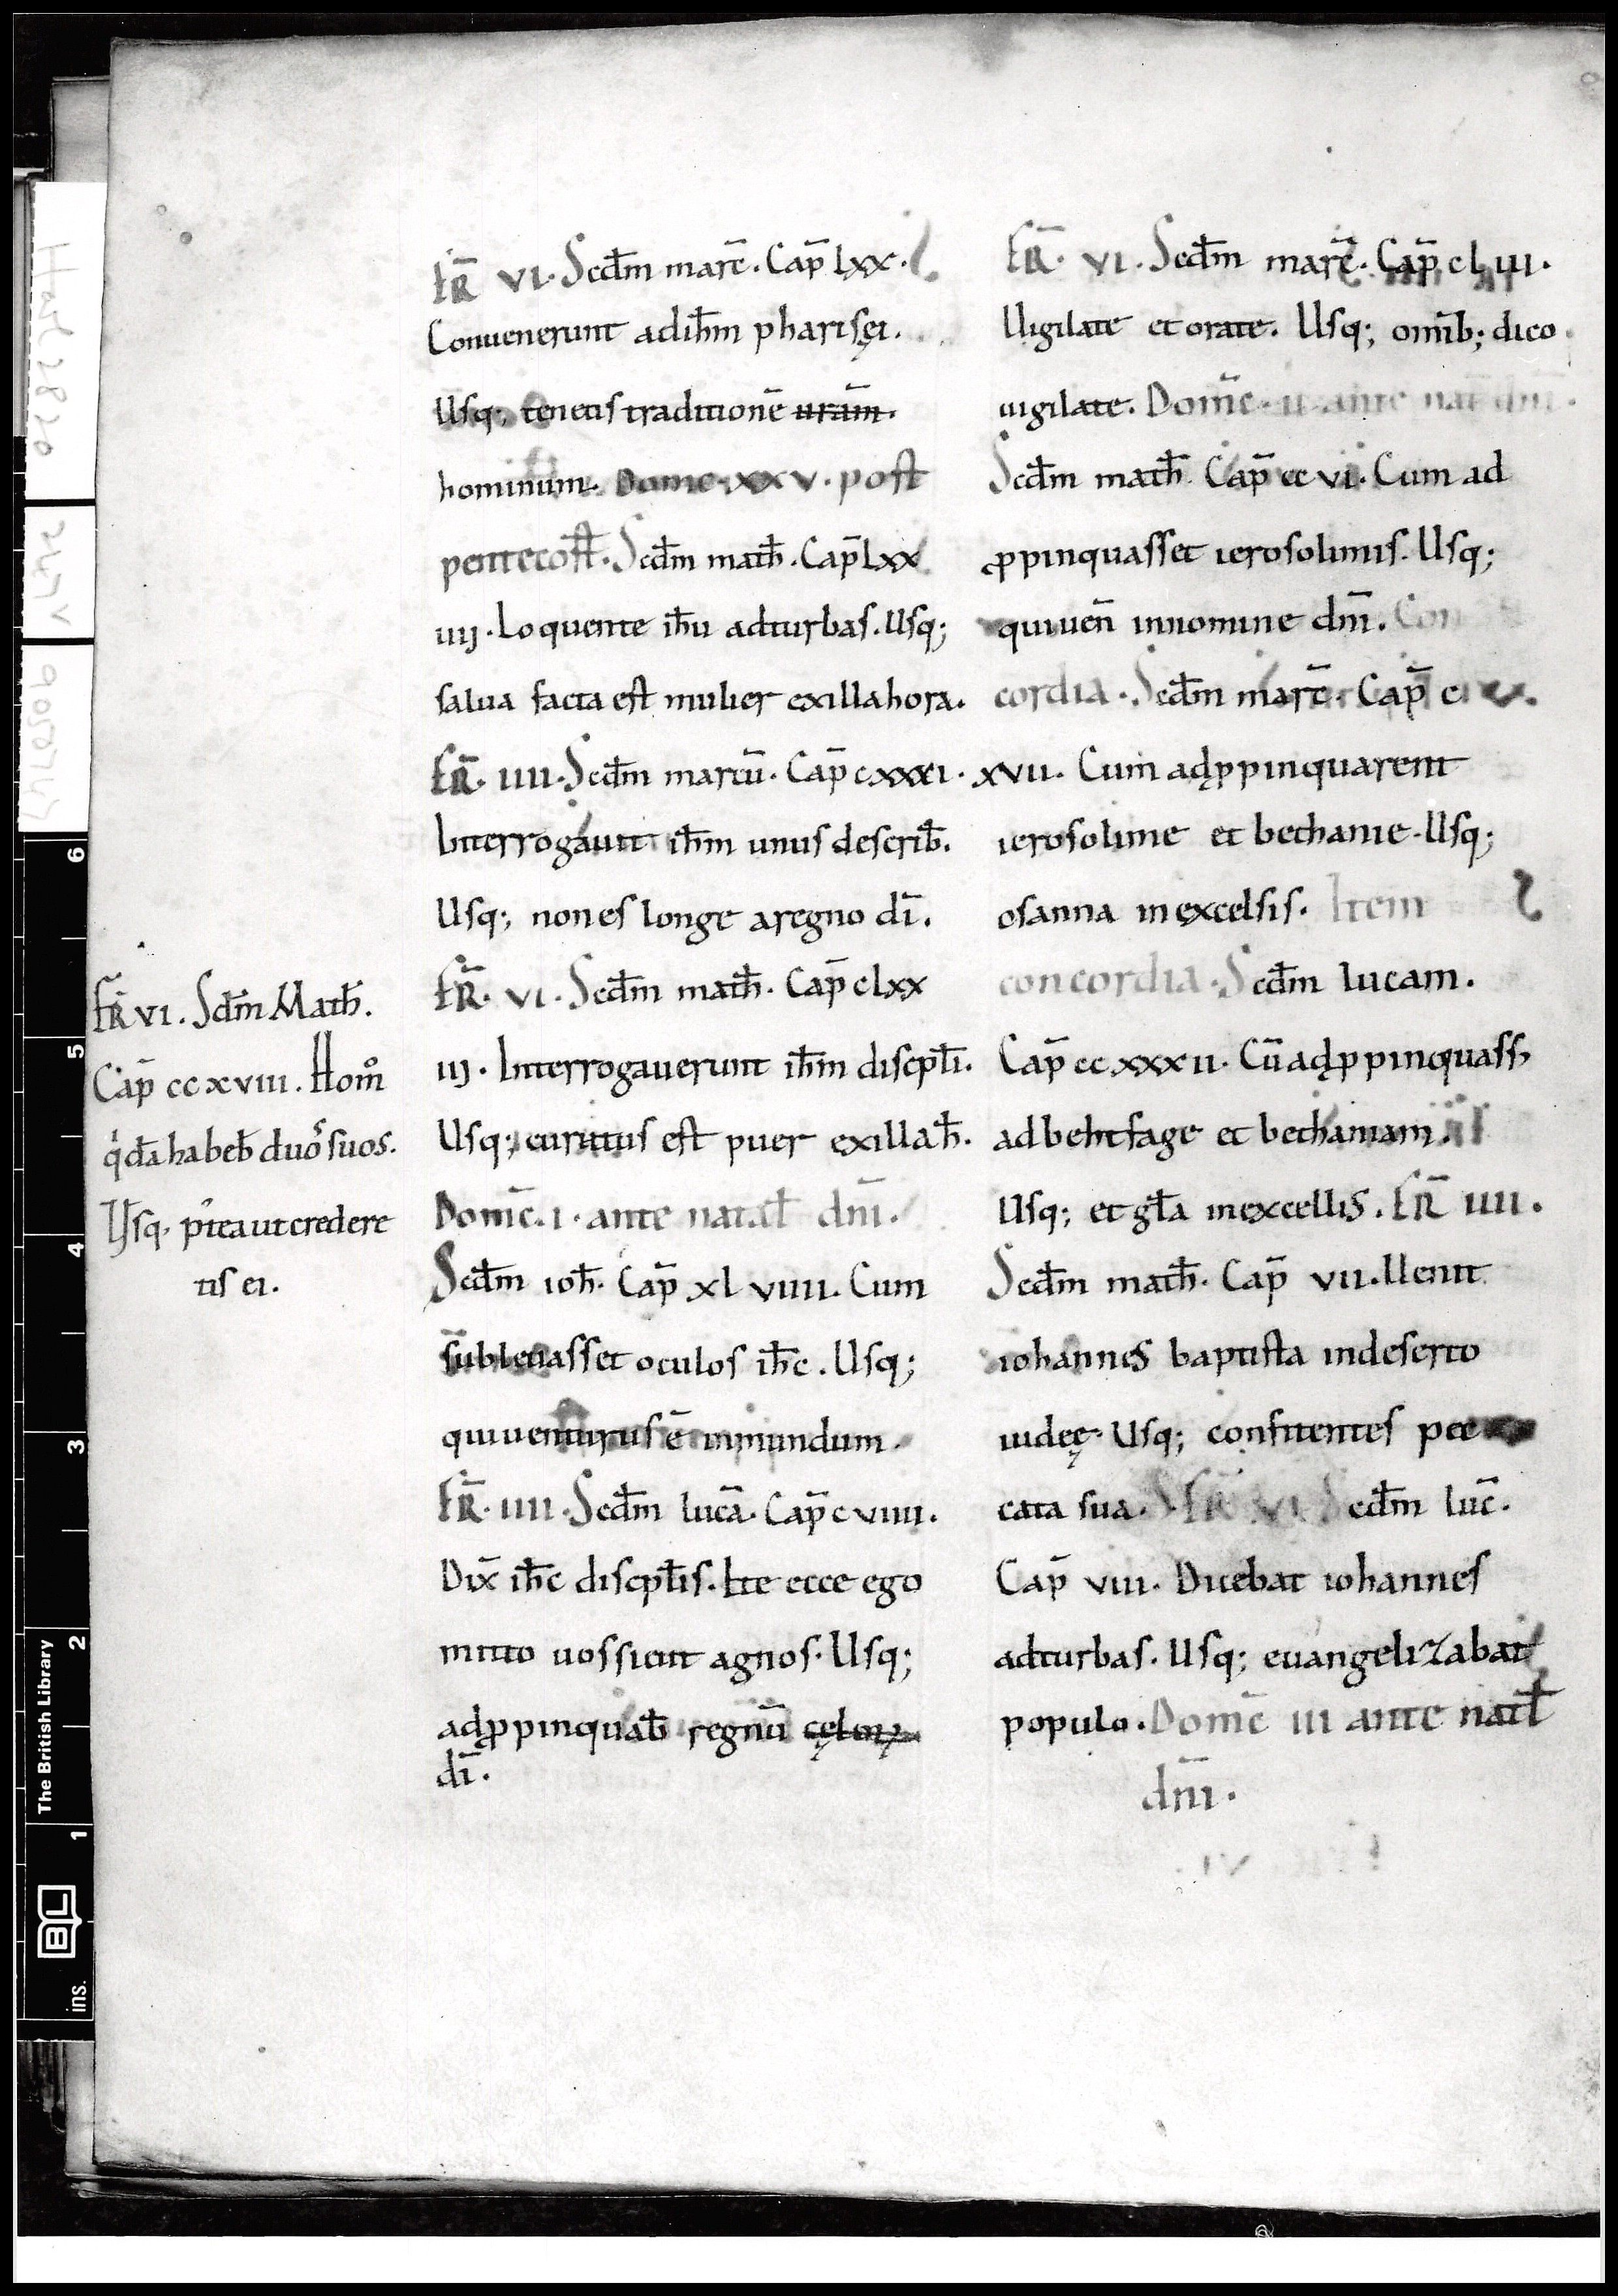 FR̄ VI. Scd̄m marc̄. Cap̄ lxx.
Conuenerunt adih̄m pharisęi.
Usq; tenetis traditionē uram̄.
hominum. Domc̄. xxv. post
pentecost̄. Scd̄m math̄. Cap̄ lxx
iiij. Loquente ih̄u adturbas. Usq;
salua facta est mulier exillahora.
FR̄. IIII. Scd̄m marcū. Cap̄ cxxxi.
Interrogauit ih̄m unus describ̄.
Usq; nones longe aregno dī.
FR̄. VI. Scd̄m math̄. Cap̄ clxx
iij. Interrogauerunt ih̄m discpłi.
Usq; curatus est puer exillah̄.
Domc̄. i. ante natał dnī.
Scd̄m ioh̄. Cap̄ xl viiii. Cum
subleuasset oculos ih̄c. Usq;
quiuenturus ē inmundum.
FR̄. IIII. Scd̄m lucā. Cap̄ c viiii.
Dix̄ ih̄c discpłis. Ite ecce ego
mitto uossicut agnos. Usq;
adꝓpinquab̄ regnū cęloꝝ
dī.
FR̄. VI. Scd̄m marc̄. Cap̄ cl iii.
Uigilate et orate. Usq; omīb; dico
uigilate. Domc̄. ii. ante nat dnī.
Scd̄m math̄. Cap̄ cc vi. Cum ad
ꝓpinquasset ierosolimis. Usq;
quiuen̄ innomine dnī. Con
cordia. Scd̄m marc̄. Cap̄ c
xvii. Cum adꝓpinquarent
ierosolime et bethanie. Usq;
osanna inexcelsis. Item
concordia. Scd̄m lucam.
Cap̄ cc xxxii. Cū adꝓpinquass,
adbehtfage et bethaniam.
Usq; et gła inexcellis. FR̄ IIII.
Scd̄m math̄. Cap̄ vii. Uenit
iohannes baptista indeserto
iudeę. Usq; confitentes pec
cata sua. FR̄ VI. Scd̄m luc̄.
Cap̄ viii. Dicebat iohannes
adturbas. Usq; euangelizabat
populo. Domc̄ iii ante natł
dnī.
FR̄ VI. Sdm̄ Math̄.
Cap̄ cc xviii. Hom̊
qd̄a habeb̄ duos suos.
Usq. ṕtea ut credere
tis ei.
The British Library
ins.
1
2
3
4
5
6